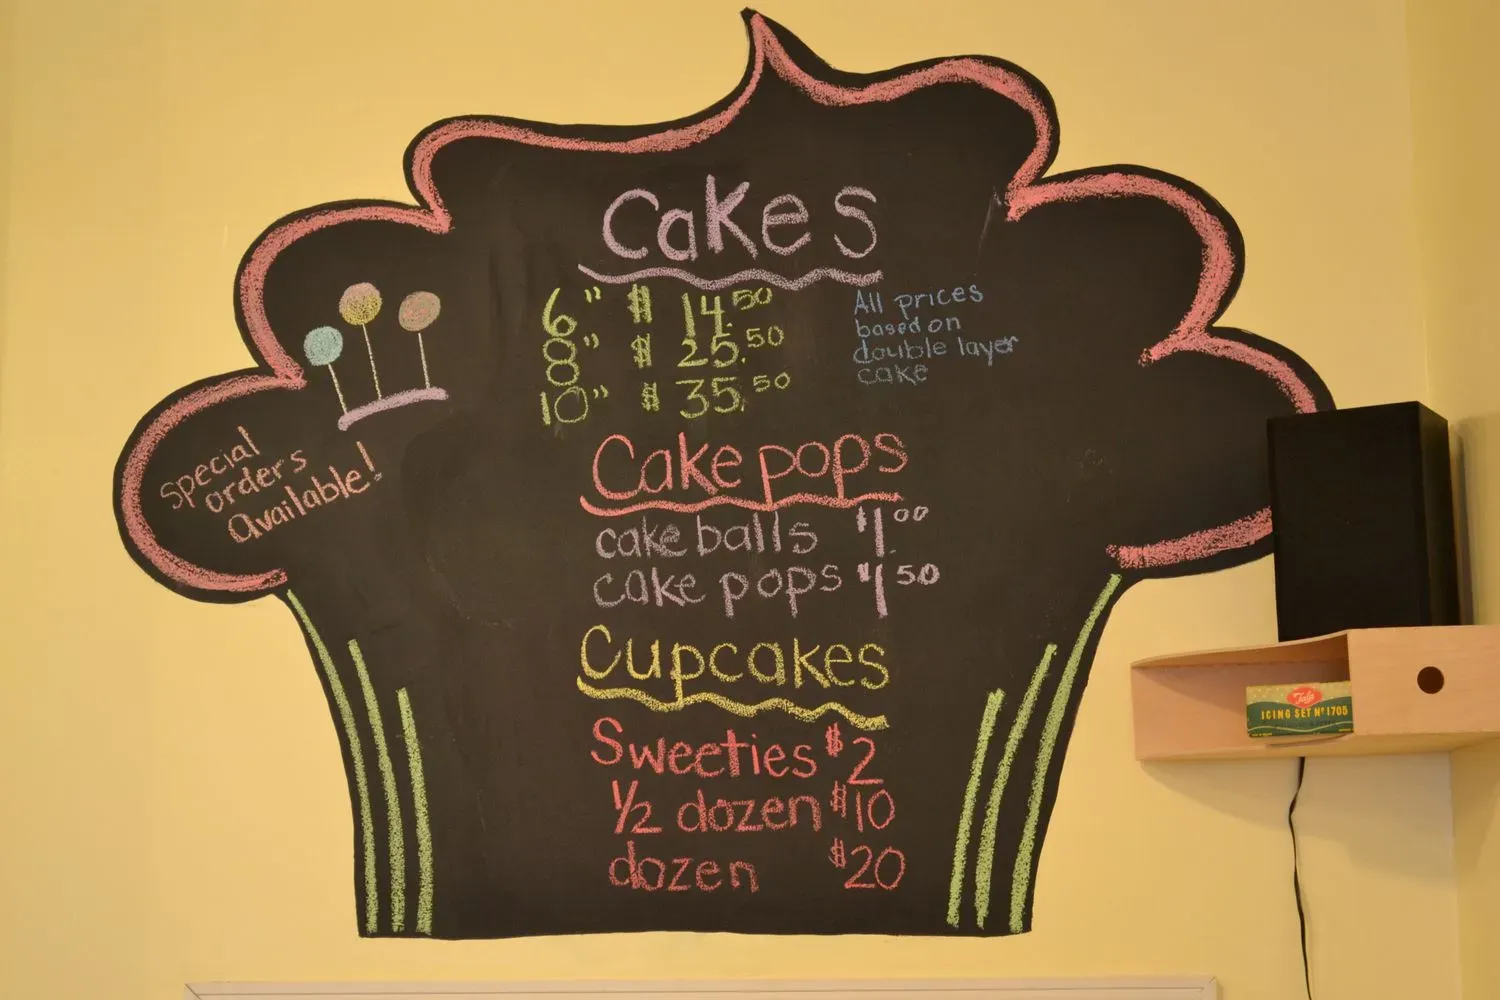 Cakes
6" $ 14.50
8" $ 25.50
10" $ 35.50
All prices
based on
double layer
cake
Special
orders
Available!
Cake pops
cake balls $1.00
cake pops $1.50
Cupcakes
Sweeties $2
1/2 dozen $10
dozen $20
Tala
ICING SET Nº 1705